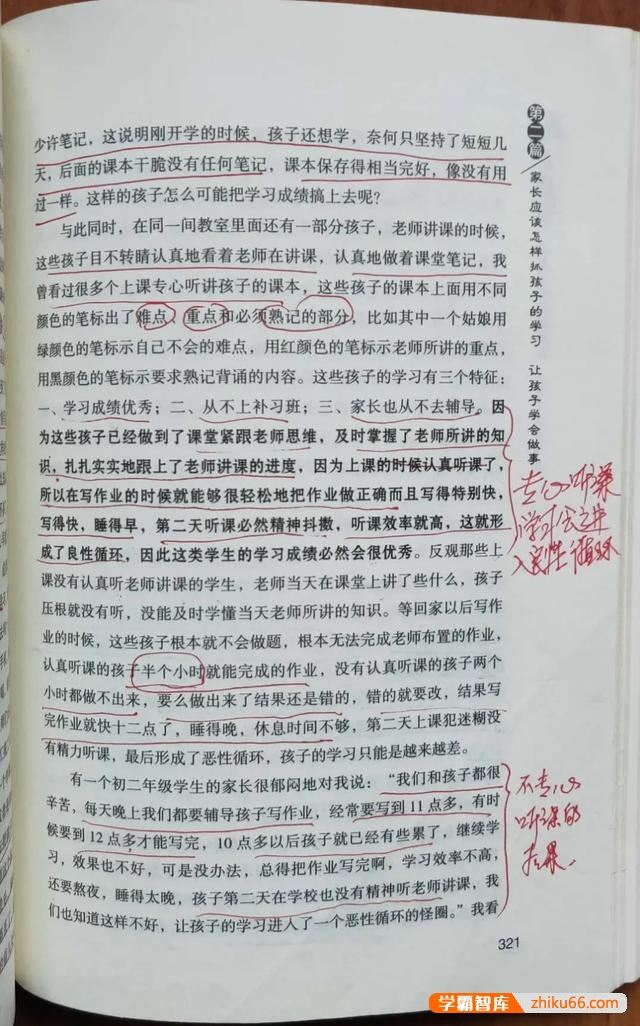 少许笔记，这说明刚开学的时候，孩子还想学，奈何只坚持了短短几
天，后面的课本干脆没有任何笔记，课本保存得相当完好，像没有用
过一样。这样的孩子怎么可能把学习成绩搞上去呢？
与此同时，在同一间教室里面还有一部分孩子，老师讲课的时候，
这些孩子目不转睛认真地看着老师在讲课，认真地做着课堂笔记，我
曾看过很多个上课专心听讲孩子的课本，这些孩子的课本上面用不同
颜色的笔标出了难点、重点和必须熟记的部分，比如其中一个姑娘用
绿颜色的笔标示自己不会的难点，用红颜色的笔标示老师所讲的重点，
用黑颜色的笔标示要求熟记背诵的内容。这些孩子的学习有三个特征：
一、学习成绩优秀；二、从不上补习班；三、家长也从不去辅导。因
为这些孩子已经做到了课堂紧跟老师思维，及时掌握了老师所讲的知
识，扎扎实实地跟上了老师讲课的进度，因为上课的时候认真听课了，
所以在写作业的时候就能够很轻松地把作业做正确而且写得特别快，
写得快，睡得早，第二天听课必然精神抖擞，听课效率就高，这就形
成了良性循环，因此这类学生的学习成绩必然会很优秀。反观那些上
课没有认真听老师讲课的学生，老师当天在课堂上讲了些什么，孩子
压根就没有听，没能及时学懂当天老师所讲的知识。等回家以后写作
业的时候，这些孩子根本就不会做题，根本无法完成老师布置的作业，
认真听课的孩子半个小时就能完成的作业，没有认真听课的孩子两个
小时都做不出来，要么做出来了结果还是错的，错的就要改，结果写
完作业就快十二点了，睡得晚，休息时间不够，第二天上课犯迷糊没
有精力听课，最后形成了恶性循环，孩子的学习只能是越来越差。
有一个初二年级学生的家长很郁闷地对我说：“我们和孩子都很
辛苦，每天晚上我们都要辅导孩子写作业，经常要写到11点多，有时
候要到12点多才能写完，10点多以后孩子就已经有些累了，继续学
习，效果也不好，可是没办法，总得把作业写完啊，学习效率不高，
还要熬夜，睡得太晚，孩子第二天在学校也没有精神听老师讲课，我
们也知道这样不好，让孩子的学习进入了一个恶性循环的怪圈。”我看
321
第二篇
家长应该怎样抓孩子的学习 让孩子学会做事
专心听课
学习会进
入良性循环
不专心
听课的
后果
学霸智库
zhiku66.com